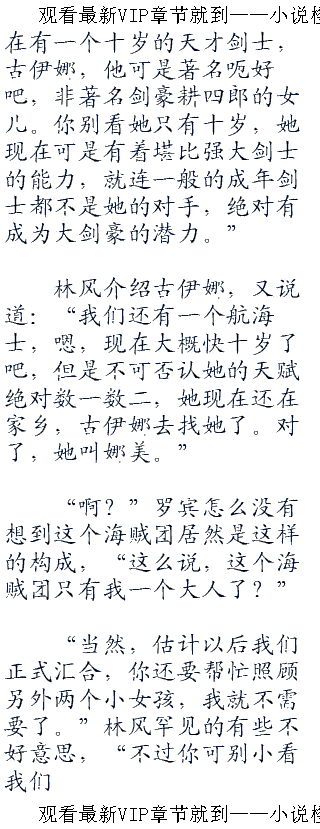 观看最新VIP章节就到——小说检
在有一个十岁的天才剑士，
古伊娜，他可是著名呃好
吧，非著名剑豪耕四郎的女
儿。你别看她只有十岁，她
现在可是有着堪比强大剑士
的能力，就连一般的成年剑
士都不是她的对手，绝对有
成为大剑豪的潜力。”
林风介绍古伊娜，又说
道：“我们还有一个航海
士，嗯，现在大概快十岁了
吧，但是不可否认她的天赋
绝对数一数二，她现在还在
家乡，古伊娜去找她了。对
了，她叫娜美。”
“啊？”罗宾怎么没有
想到这个海贼团居然是这样
的构成，“这么说，这个海
贼团只有我一个大人了？”
“当然，估计以后我们
正式汇合，你还要帮忙照顾
另外两个小女孩，我就不需
要了。”林风罕见的有些不
好意思，“不过你可别小看
我们
观看最新VIP章节就到——小说检